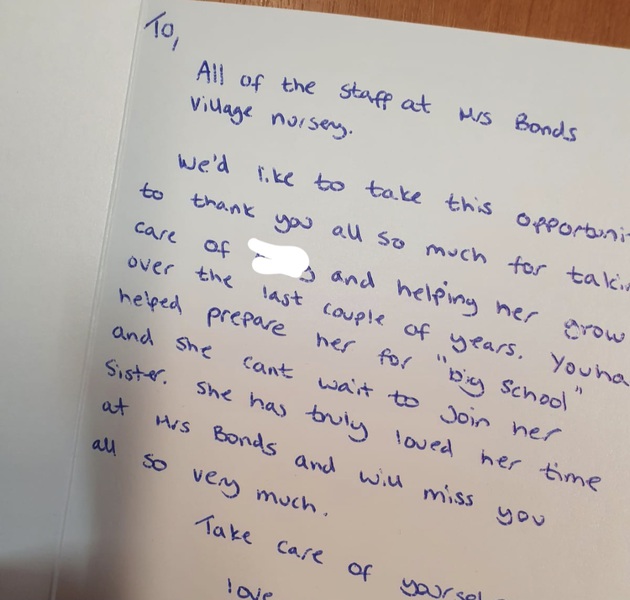 To,
All of the staff at Mrs Bonds
Village nursery.
We'd like to take this opportuni
to thank you all so much for takin
care of and helping her grow
over the last couple of years. Youha
helped prepare her for "big school"
and she cant wait to join her
sister. she has truly loved her time
at Mrs Bonds and will miss you
all so very much.
Take care of yoursel
love